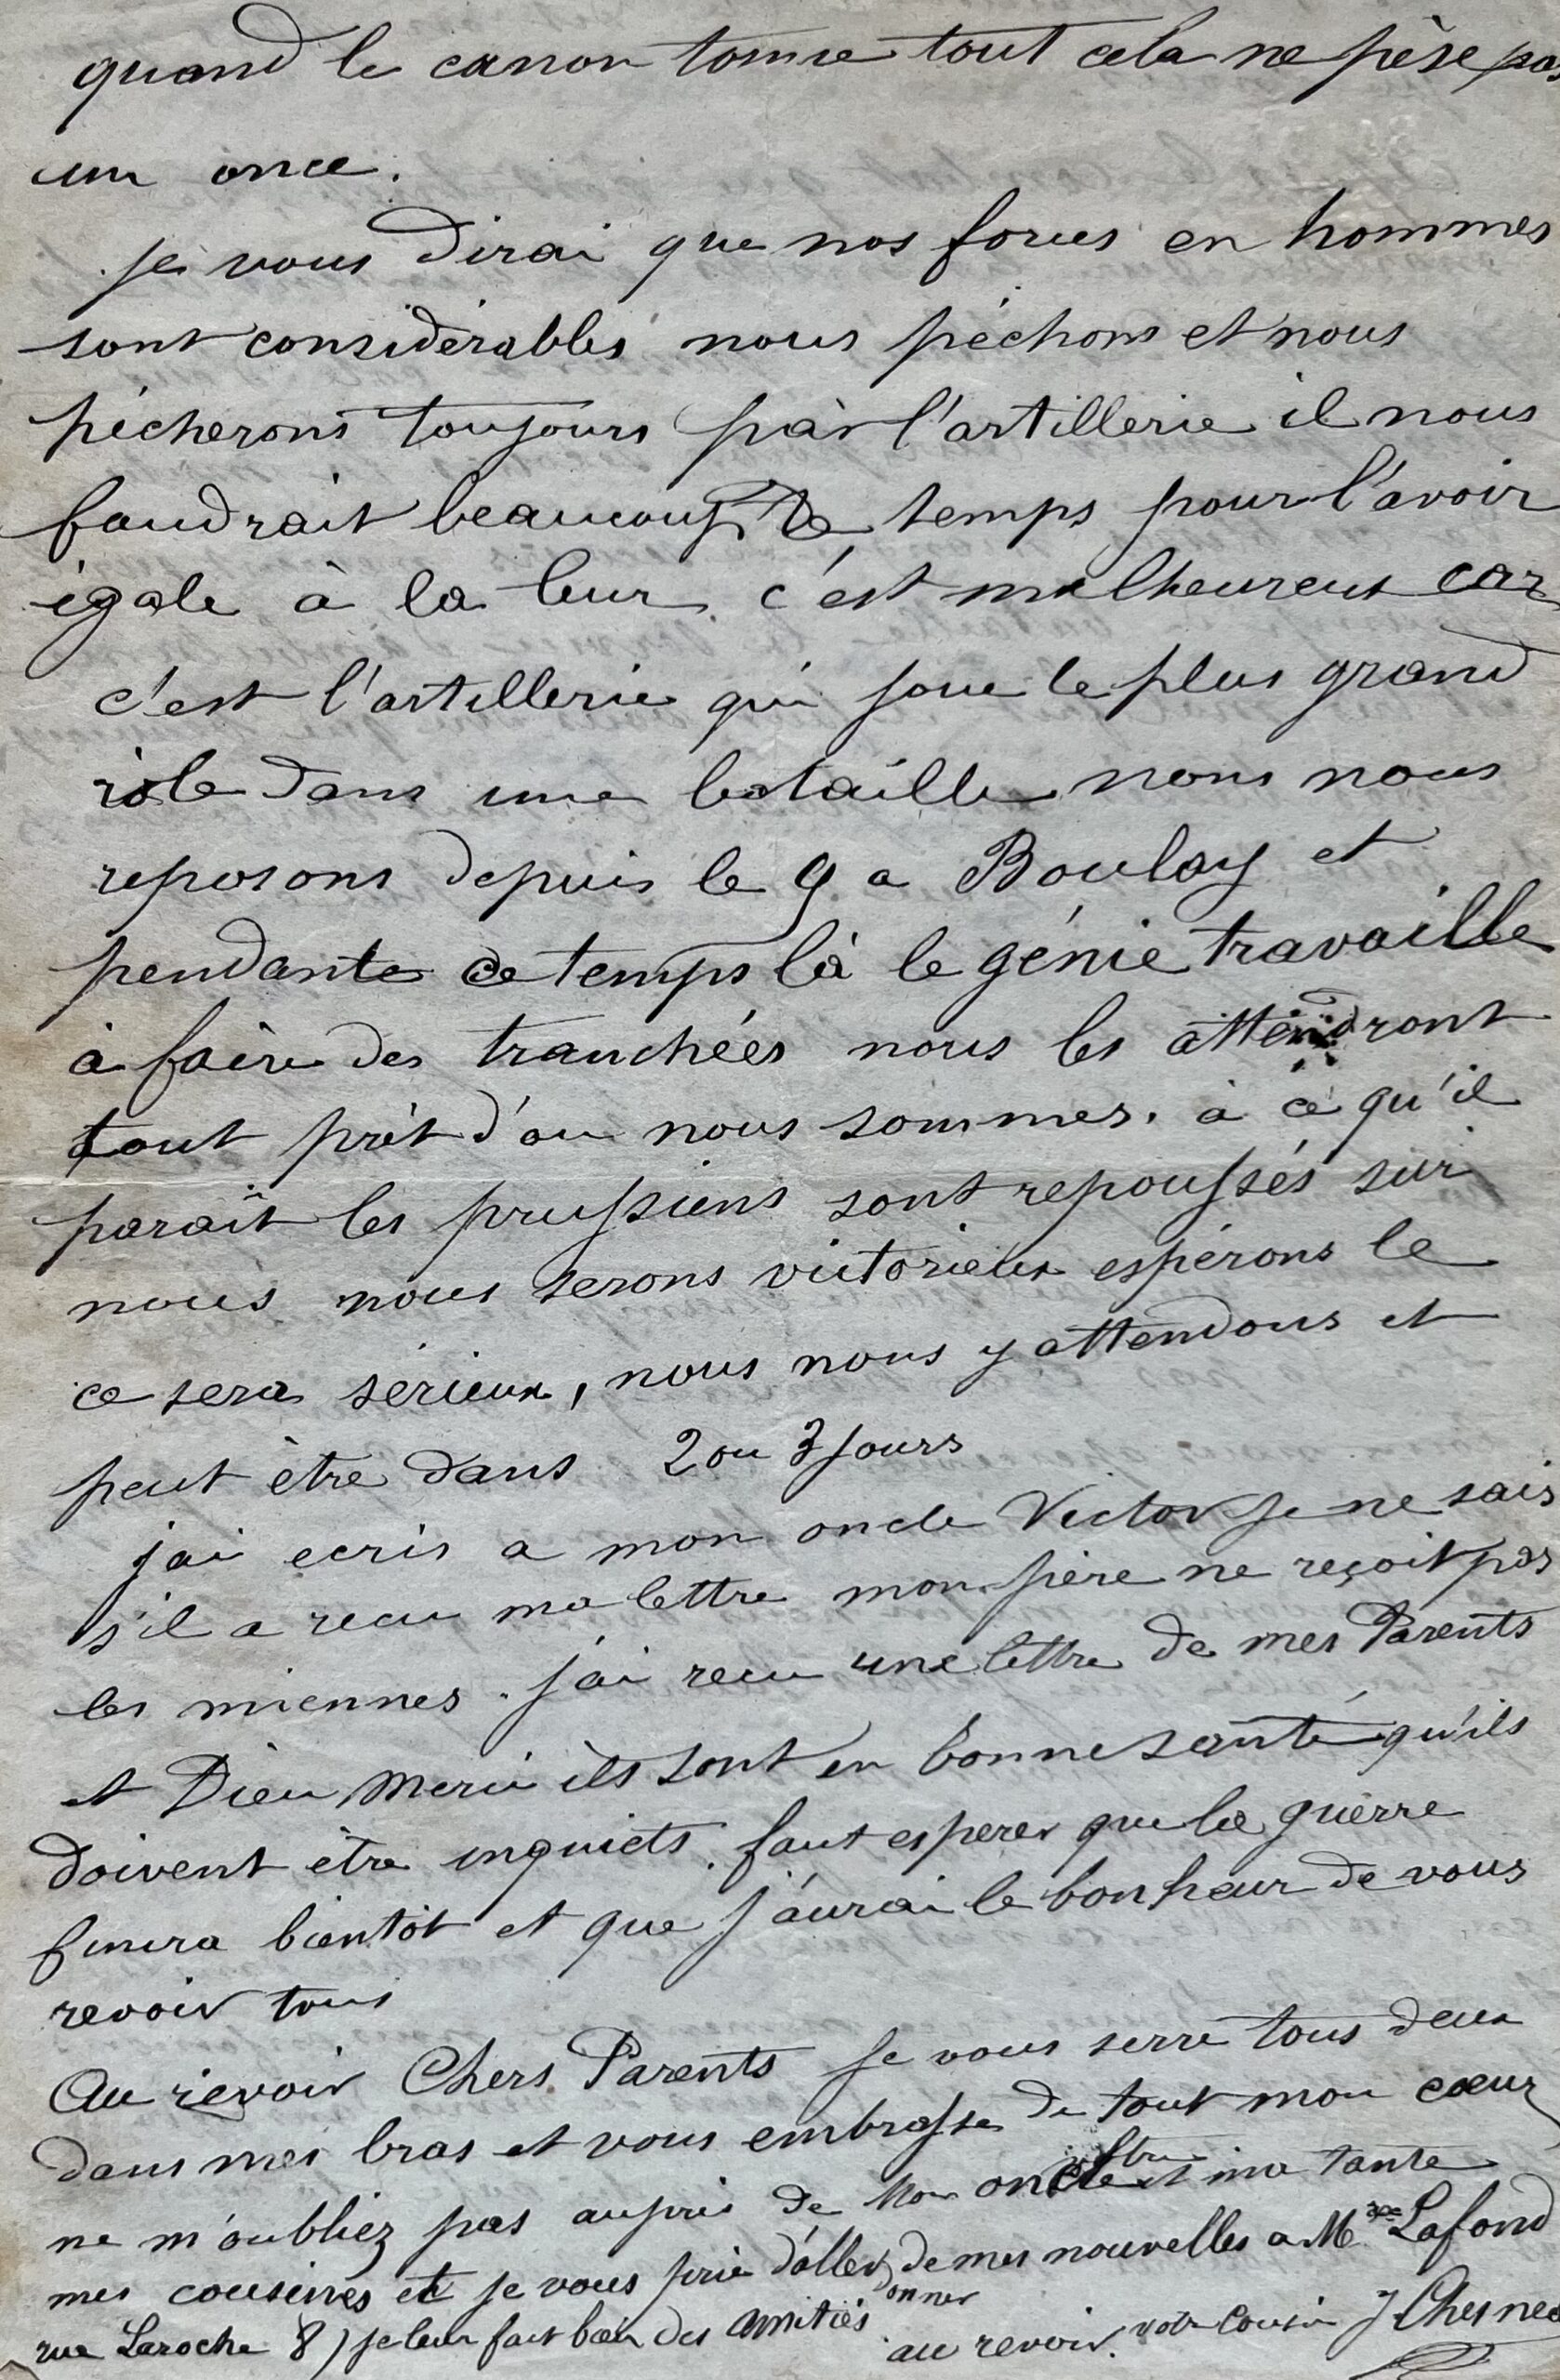 quand le canon tonne tout cela ne pèse pas
un once.
je vous dirai que nos forces en hommes
sont considérables nous péchons et nous
pécherons toujours par l'artillerie il nous
faudrait beaucoup de temps pour l'avoir
égale à la leur c'est malheureux car
c'est l'artillerie qui joue le plus grand
rôle dans une bataille nous nous
reposons depuis le 9 a Boulay et
pendante ce temps là le génie travaille
à faire des tranchées nous les attendront
tout prêt d'ou nous sommes. à ce qu'il
parait les prussiens sont repoussés sur
nous nous serons victorieux espérons le
ce sera sérieux, nous nous y attendons et
peut être dans 2 ou 3 jours
j'ai ecris a mon oncle Victor je ne sais
s'il a recu ma lettre mon père ne reçoit pas
les miennes. j'ai recu une lettre de mes Parents
et Dieu Merci ils sont en bonne santé qu'ils
doivent être inquiets. faut esperer que la guerre
finira bientôt et que j'aurai le bonheur de vous
revoir tous
Au revoir Chers Parents je vous serre tous deux
dans mes bras et vous embrasse de tout mon cœur
ne m'oubliez pas auprès de mon oncle et ma tante
mes cousines et je vous prie d'aller donner de mes nouvelles a Mme Lafond
rue Laroche 8) je leur fait bien des amitiés
au revoir. votre Cousin J Chesneau